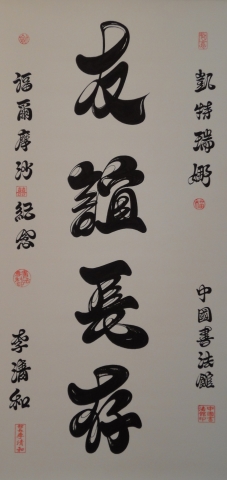 凱特瑞娜
中國書法館
友誼長存
福爾摩沙紀念
李濤和